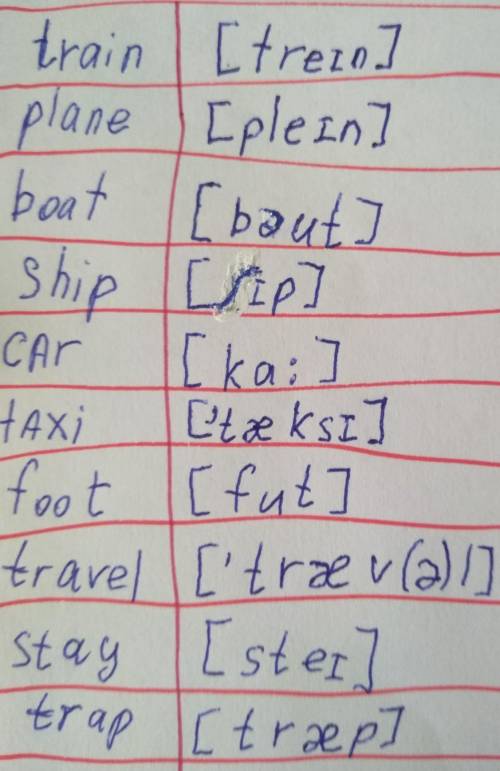 train [treɪn]
plane [pleɪn]
boat [bəut]
ship [ʃɪp]
CAr [ka:]
tAXi ['tæksɪ]
foot [fut]
travel ['træv(ə)l]
stay [steɪ]
trap [træp]